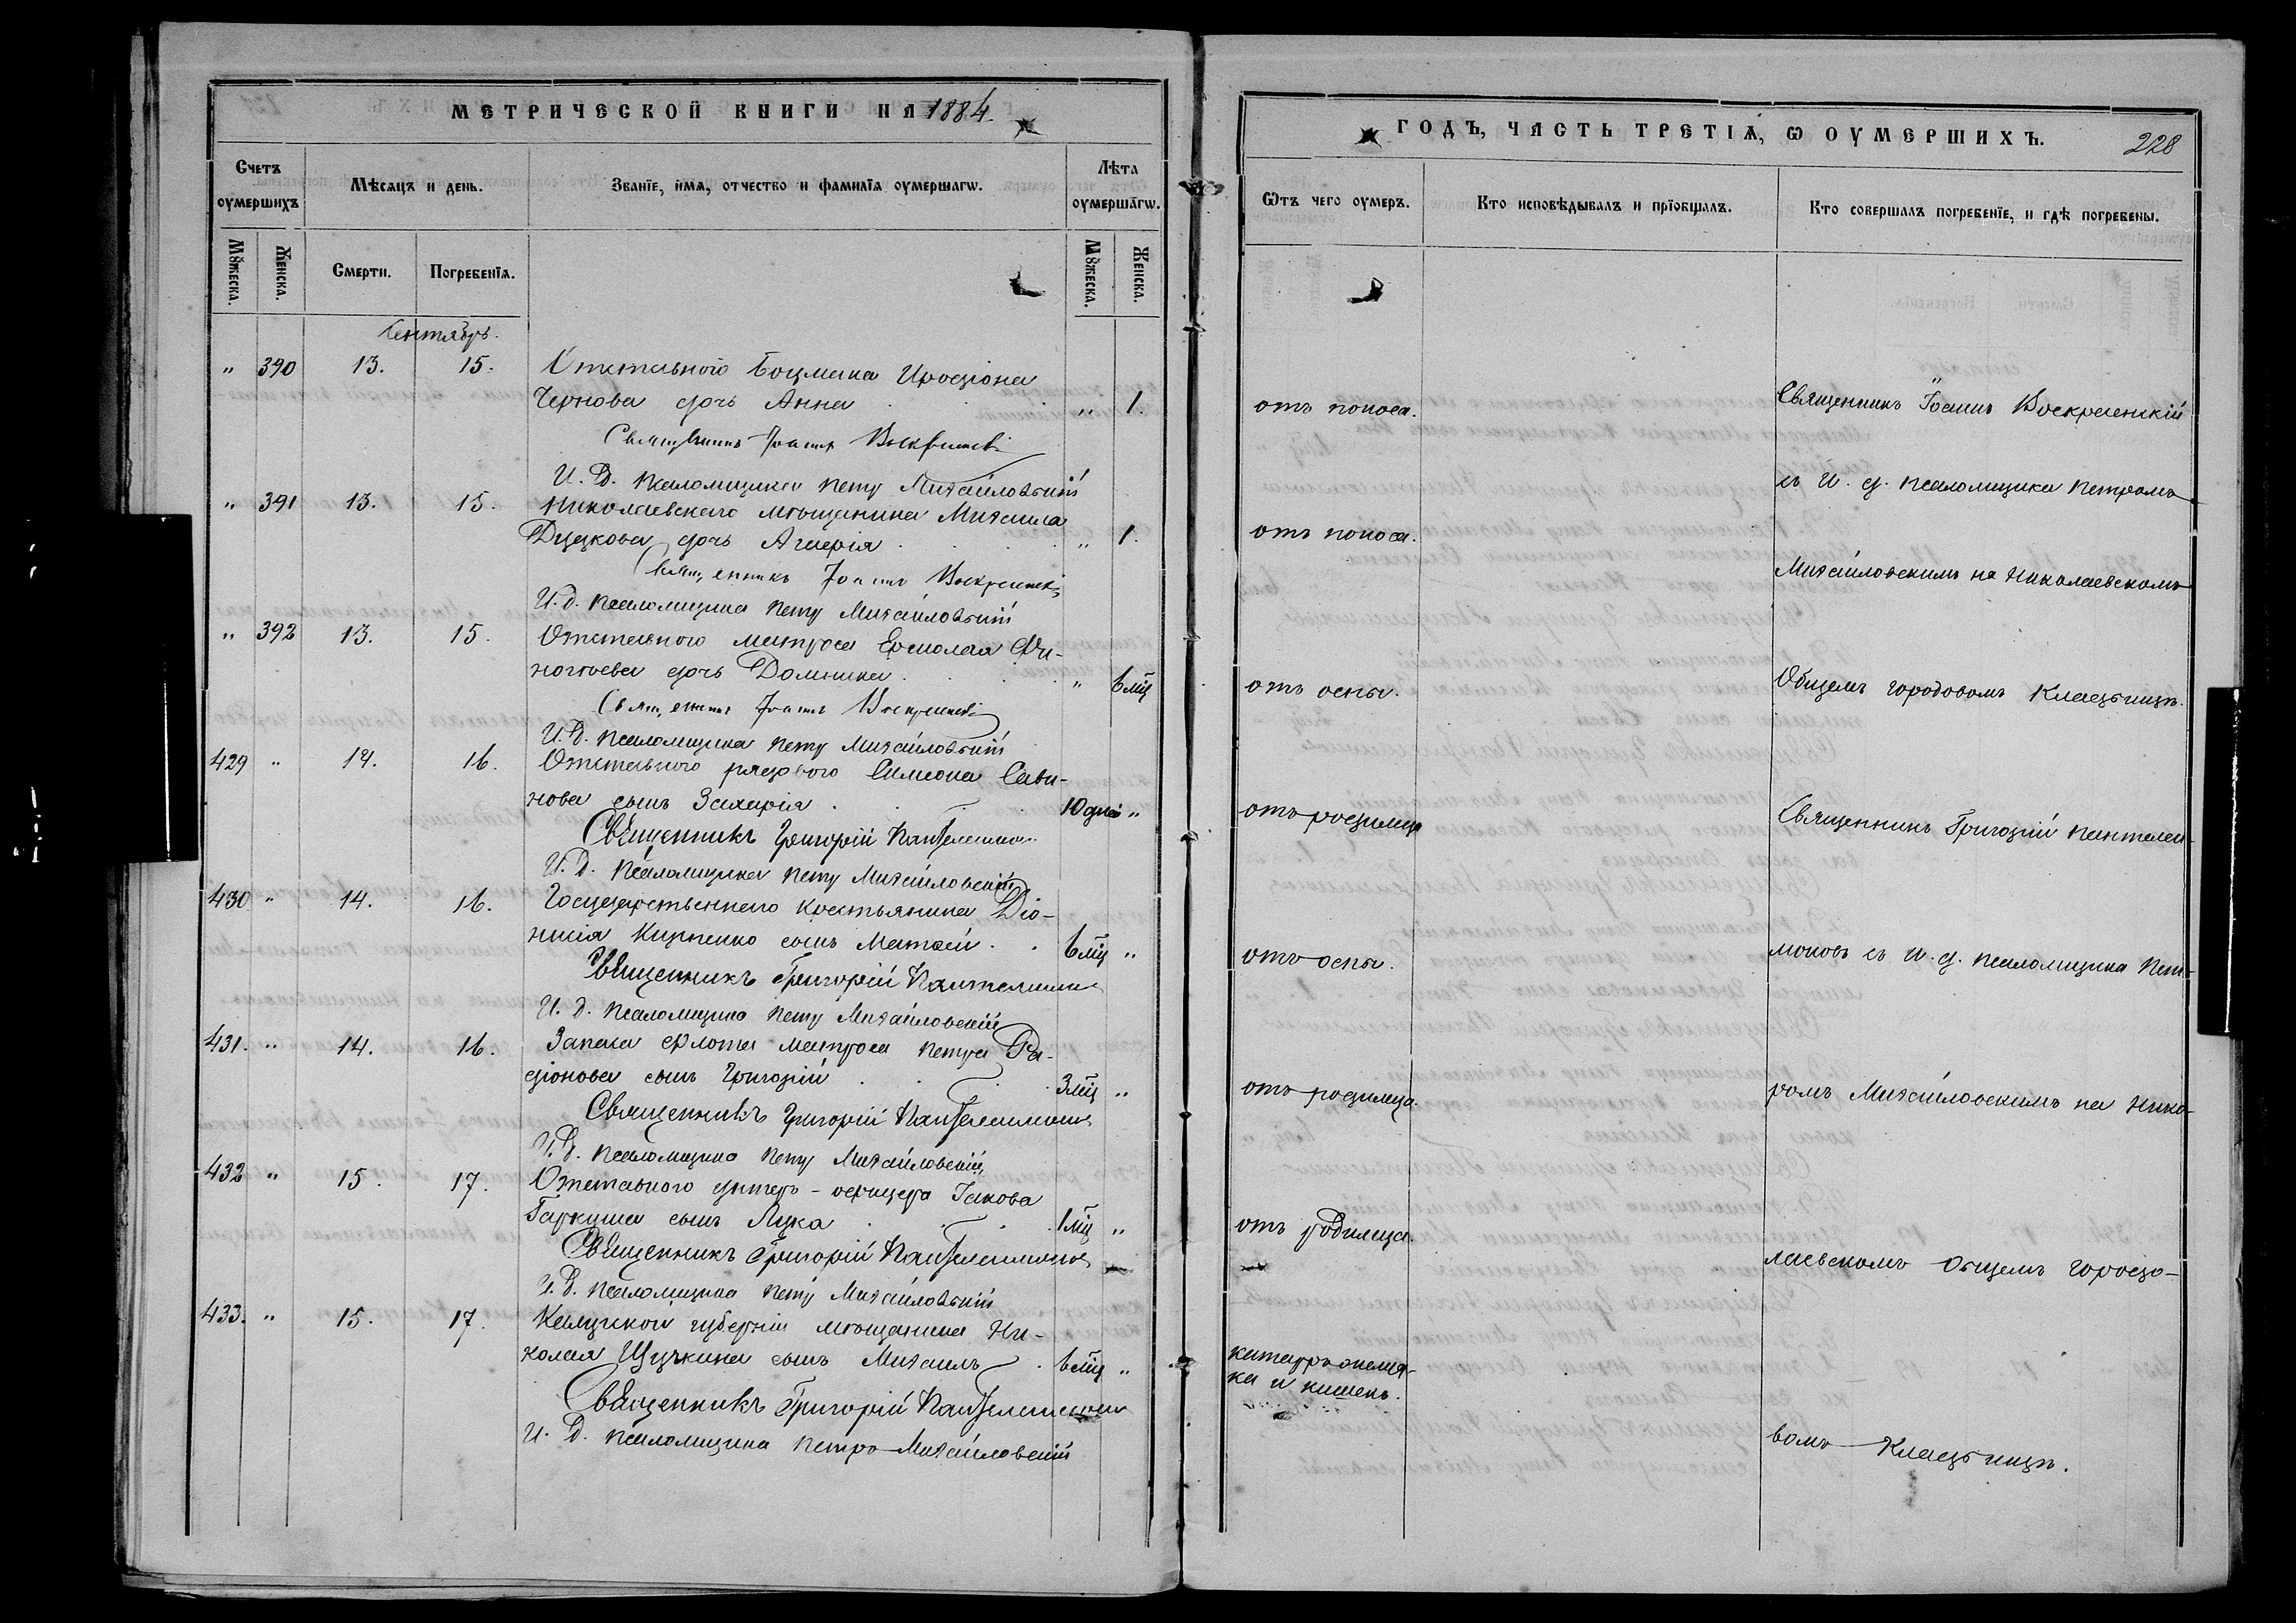 МЕТРИЧЕСКОЙ КНИГИ НА 1884.
Счетъ оумершихъ
Мѣсяцъ и день.
Званїе, имя, отчество и фамилїя оумершагѡ.
Лѣта оумершагѡ.
Мꙋжеска.
Женска.
Смерти.
Погребенїя.
Мꙋжеска.
Женска.
Сентябрь.
" 390 13. 15. Отставного Боцмана Иродіона
Чернова дочь Анна " 1.
Священникъ Іоаннъ Воскресенскі
И. д. псаломщика Петръ Михайловскій
" 391 13. 15. Николаевскаго мѣщанина Михаила
дочь " 1.
Священникъ Іоаннъ Воскресенскі
И. д. псаломщика Петръ Михайловскій
" 392 13. 15. Отставного матроса Ермолая Фи-
ногѣева дочь Домника " 6 мц
Священникъ Іоаннъ Воскресенскі
И. д. псаломщика Петръ Михайловскій
429 " 14. 16. Отставного рядового Симеона Сави-
нова сынъ Захарія 10 дней "
Священникъ Григорій Пантелеимоновъ
И. д. псаломщика Петръ Михайловскій
430 " 14. 16. Государственнаго крестьянина Діо-
нисія Кирпенко сынъ Матѳей 6 мц "
Священникъ Григорій Пантелеимоновъ
И. д. псаломщика Петръ Михайловскій
431. " 14. 16. Запаса флота матроса Петра Ра-
діонова сынъ Григорій 3 мц "
Священникъ Григорій Пантелеимоновъ
И. д. псаломщика Петръ Михайловскій
432 " 15. 17. Отставного унтеръ-офицера Іакова
Гаркуша сынъ Лука 1 мц "
Священникъ Григорій Пантелеимоновъ
И. д. псаломщика Петръ Михайловскій
433. " 15. 17. Калужской губерніи мѣщанина Ни-
колая Щучкина сынъ Михаилъ 6 мц "
Священникъ Григорій Пантелеимоновъ
И. д. псаломщика Петръ Михайловскій
ГОДЪ, ЧАСТЬ ТРЕТІЯ, Ѡ ОУМЕРШИХЪ.
228
Ѿтъ чего оумеръ.
Кто исповѣдывалъ и прїобщалъ.
Кто совершалъ погребенїе, и гдѣ погребены.
отъ поноса.
Священникъ Іоаннъ Воскресенскій
съ И. д. псаломщика Петромъ
отъ поноса.
Михайловскимъ на Николаевскомъ
отъ оспы.
Общемъ городовомъ кладбищѣ.
отъ родимца
Священникъ Григорій Пантелеи-
отъ оспы.
моновъ съ И. д. псаломщика Пет-
отъ родимца.
ромъ Михайловскимъ на Нико-
отъ родимца.
лаевскомъ Общемъ городо-
катарра желуд-
ка и кишекъ.
вомъ кладбищѣ.